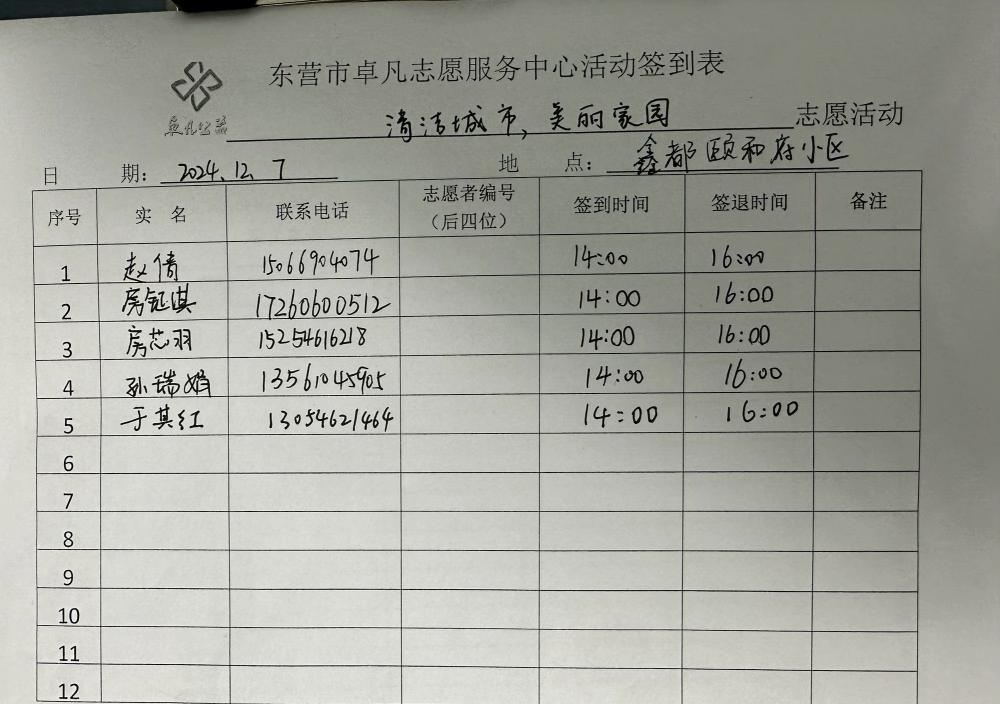 东营市卓凡志愿服务中心活动签到表
卓凡公益
清洁城市,美丽家园 志愿活动
日 期: 2024.12.7 地 点: 鑫都颐和府小区
序号 实 名 联系电话 志愿者编号(后四位) 签到时间 签退时间 备注
1 赵倩 15066904074 14:00 16:00
2 房钰淇 17260600512 14:00 16:00
3 房芯羽 15254616218 14:00 16:00
4 孙瑞娟 13561045905 14:00 16:00
5 于其红 13054621464 14:00 16:00
6
7
8
9
10
11
12